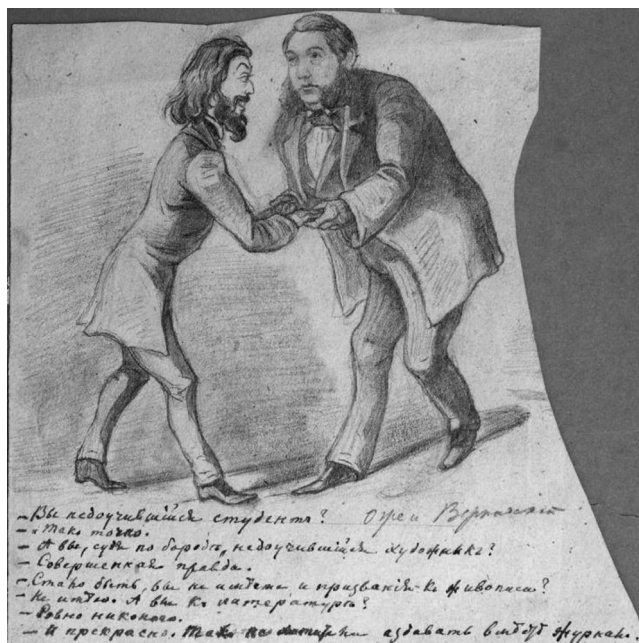 – Вы недоучившійся студентъ?
– Такъ точно.
– А вы, судя по бородѣ, недоучившійся художникъ?
– Совершенная правда.
– Стало быть, вы не имѣете и призванія къ живописи?
– Не имѣю. А вы къ литературѣ?
– Ровно никакого.
– И прекрасно. издавать журналъ.